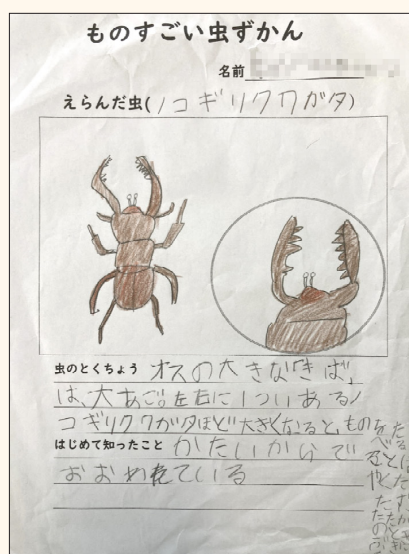 ものすごい虫ずかん
名前
えらんだ虫(ノコギリクワガタ)
虫のとくちょう オスの大きな「きば」
は、大あご。左右に1ついあるノ
コギリクワガタほど大きくなると、もの
はじめて知ったこと かたいからで
おおわれている